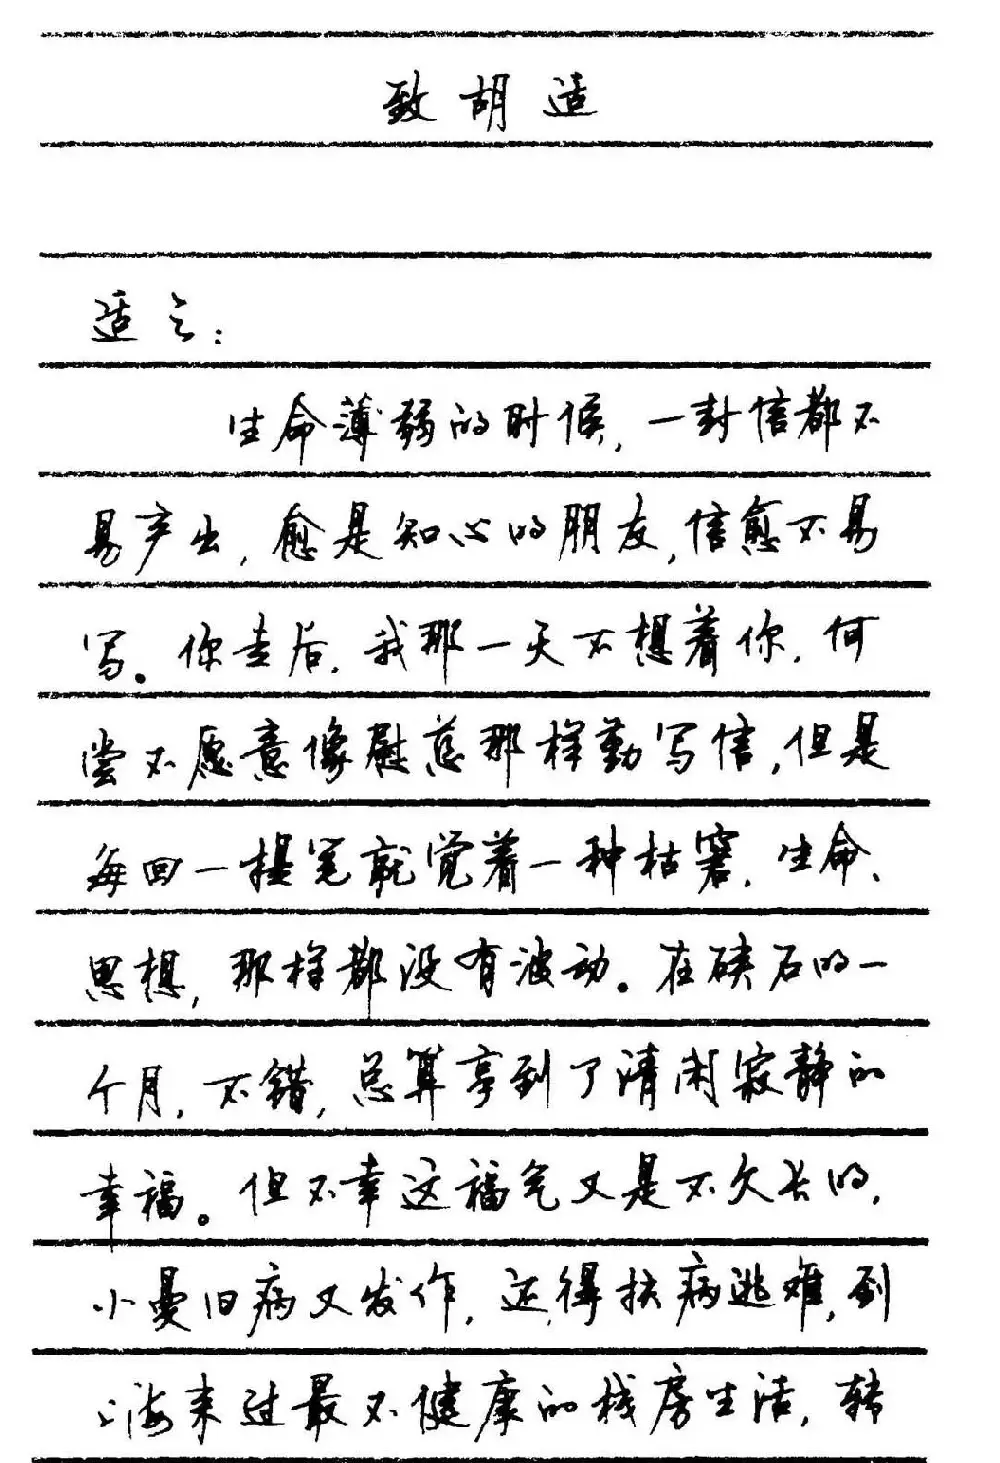 致胡适
适之：
生命薄弱的时候，一封信都不
易产出，愈是知心的朋友，信愈不易
写。你走后，我那一天不想着你，何
尝不愿意像慰慈那样勤写信，但是
每回一提笔就觉着一种枯窘，生命、
思想，那样都没有波动。在硖石的一
个月，不错，总算享到了清闲寂静的
幸福。但不幸这福气又是不久长的，
小曼旧病又发作，还得扶病逃难，到
上海来过最不健康的栈房生活，转